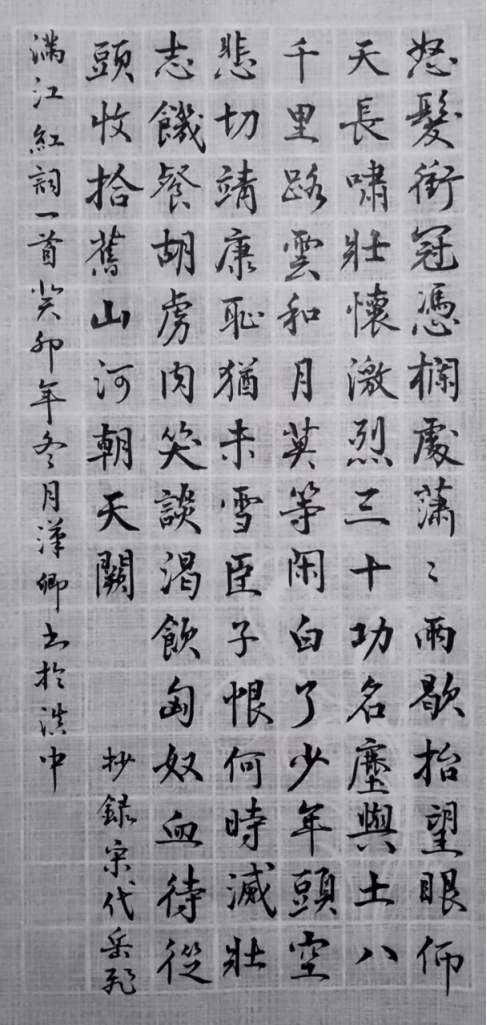 怒髮衝冠憑欄處瀟〻雨歇抬望眼仰
天長嘯壯懷激烈三十功名塵與土八
千里路雲和月莫等閑白了少年頭空
悲切靖康恥猶未雪臣子恨何時滅壯
志饑餐胡虜肉笑談渴飲匈奴血待從
頭收拾舊山河朝天闕 抄錄宋代岳飛
滿江紅詞一首癸卯年冬月漢卿书於滇中